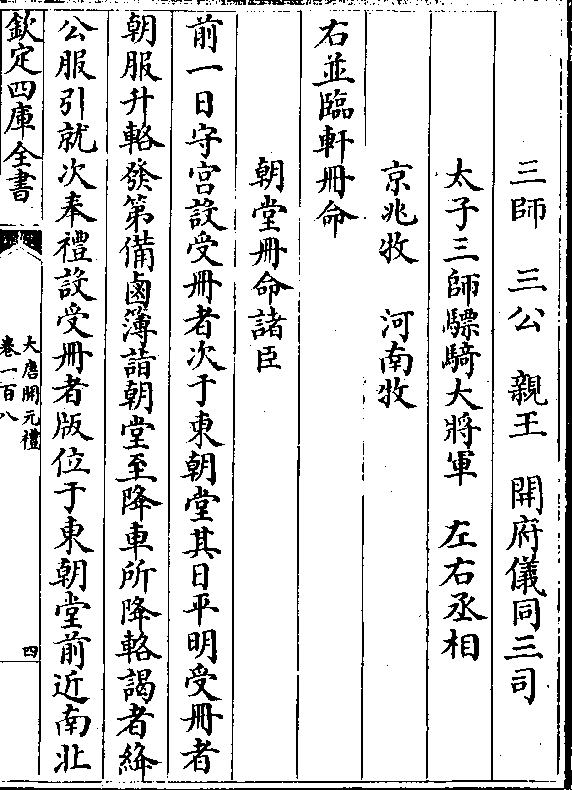 三師　三公　親王　開府儀同三司
太子三師驃騎大將軍　左右丞相
京兆牧　河南牧
右並臨軒冊命
朝堂冊命諸臣
前一日守宮設受冊者次于東朝堂其日平明受冊者
朝服升輅發第備鹵簿詣朝堂至降車所降輅謁者絳
公服引就次奉禮設受冊者版位于東朝堂前近南北
欽定四庫全書
大唐開元禮
卷一百八
四